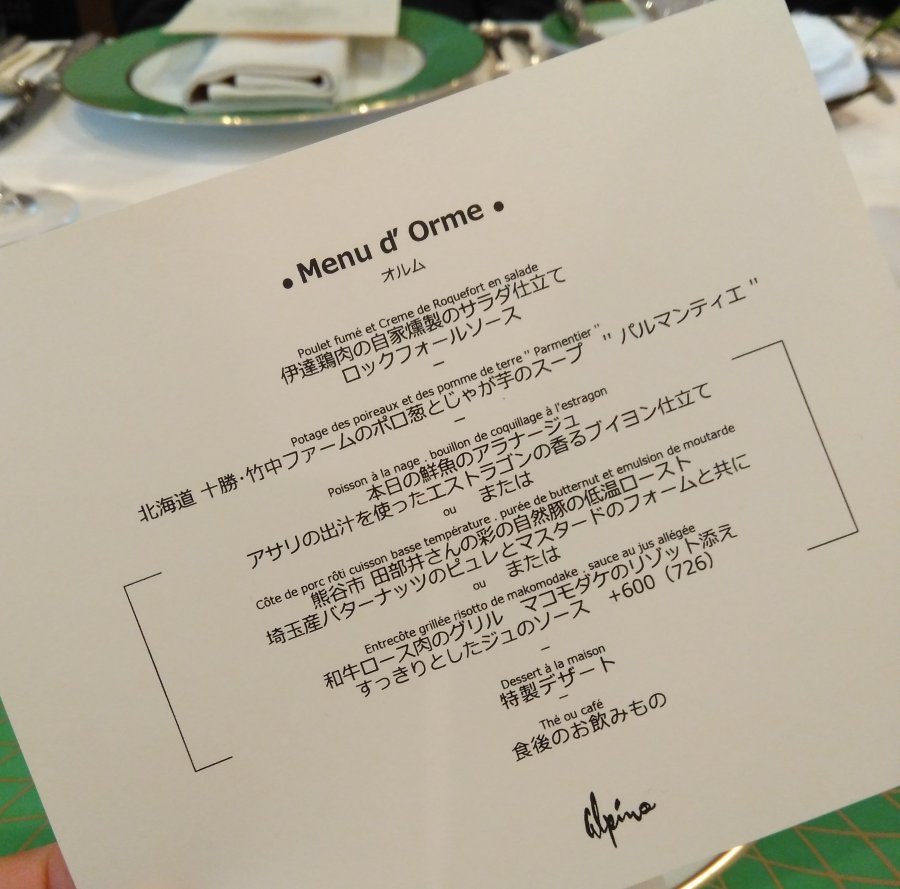 • Menu d' Orme •
オルム
Poulet fumé et Creme de Roquefort en salade
伊達鶏肉の自家燻製のサラダ仕立て
ロックフォールソース
–
Potage des poireaux et des pomme de terre " Parmentier "
北海道 十勝・竹中ファームのポロ葱とじゃが芋のスープ " パルマンティエ "
–
Poisson à la nage . bouillon de coquillage à l'estragon
本日の鮮魚のアラナージュ
アサリの出汁を使ったエストラゴンの香るブイヨン仕立て
ou または
Côte de porc rôti cuisson basse température . purée de butternut et emulsion de moutarde
熊谷市 田部井さんの彩の自然豚の低温ロースト
埼玉産バターナッツのピュレとマスタードのフォームと共に
ou または
Entrecôte grillée risotto de makomodake . sauce au jus allégée
和牛ロース肉のグリル マコモダケのリゾット添え
すっきりとしたジュのソース +600（726）
–
Dessert à la maison
特製デザート
–
Thé ou café
食後のお飲みもの
alpino